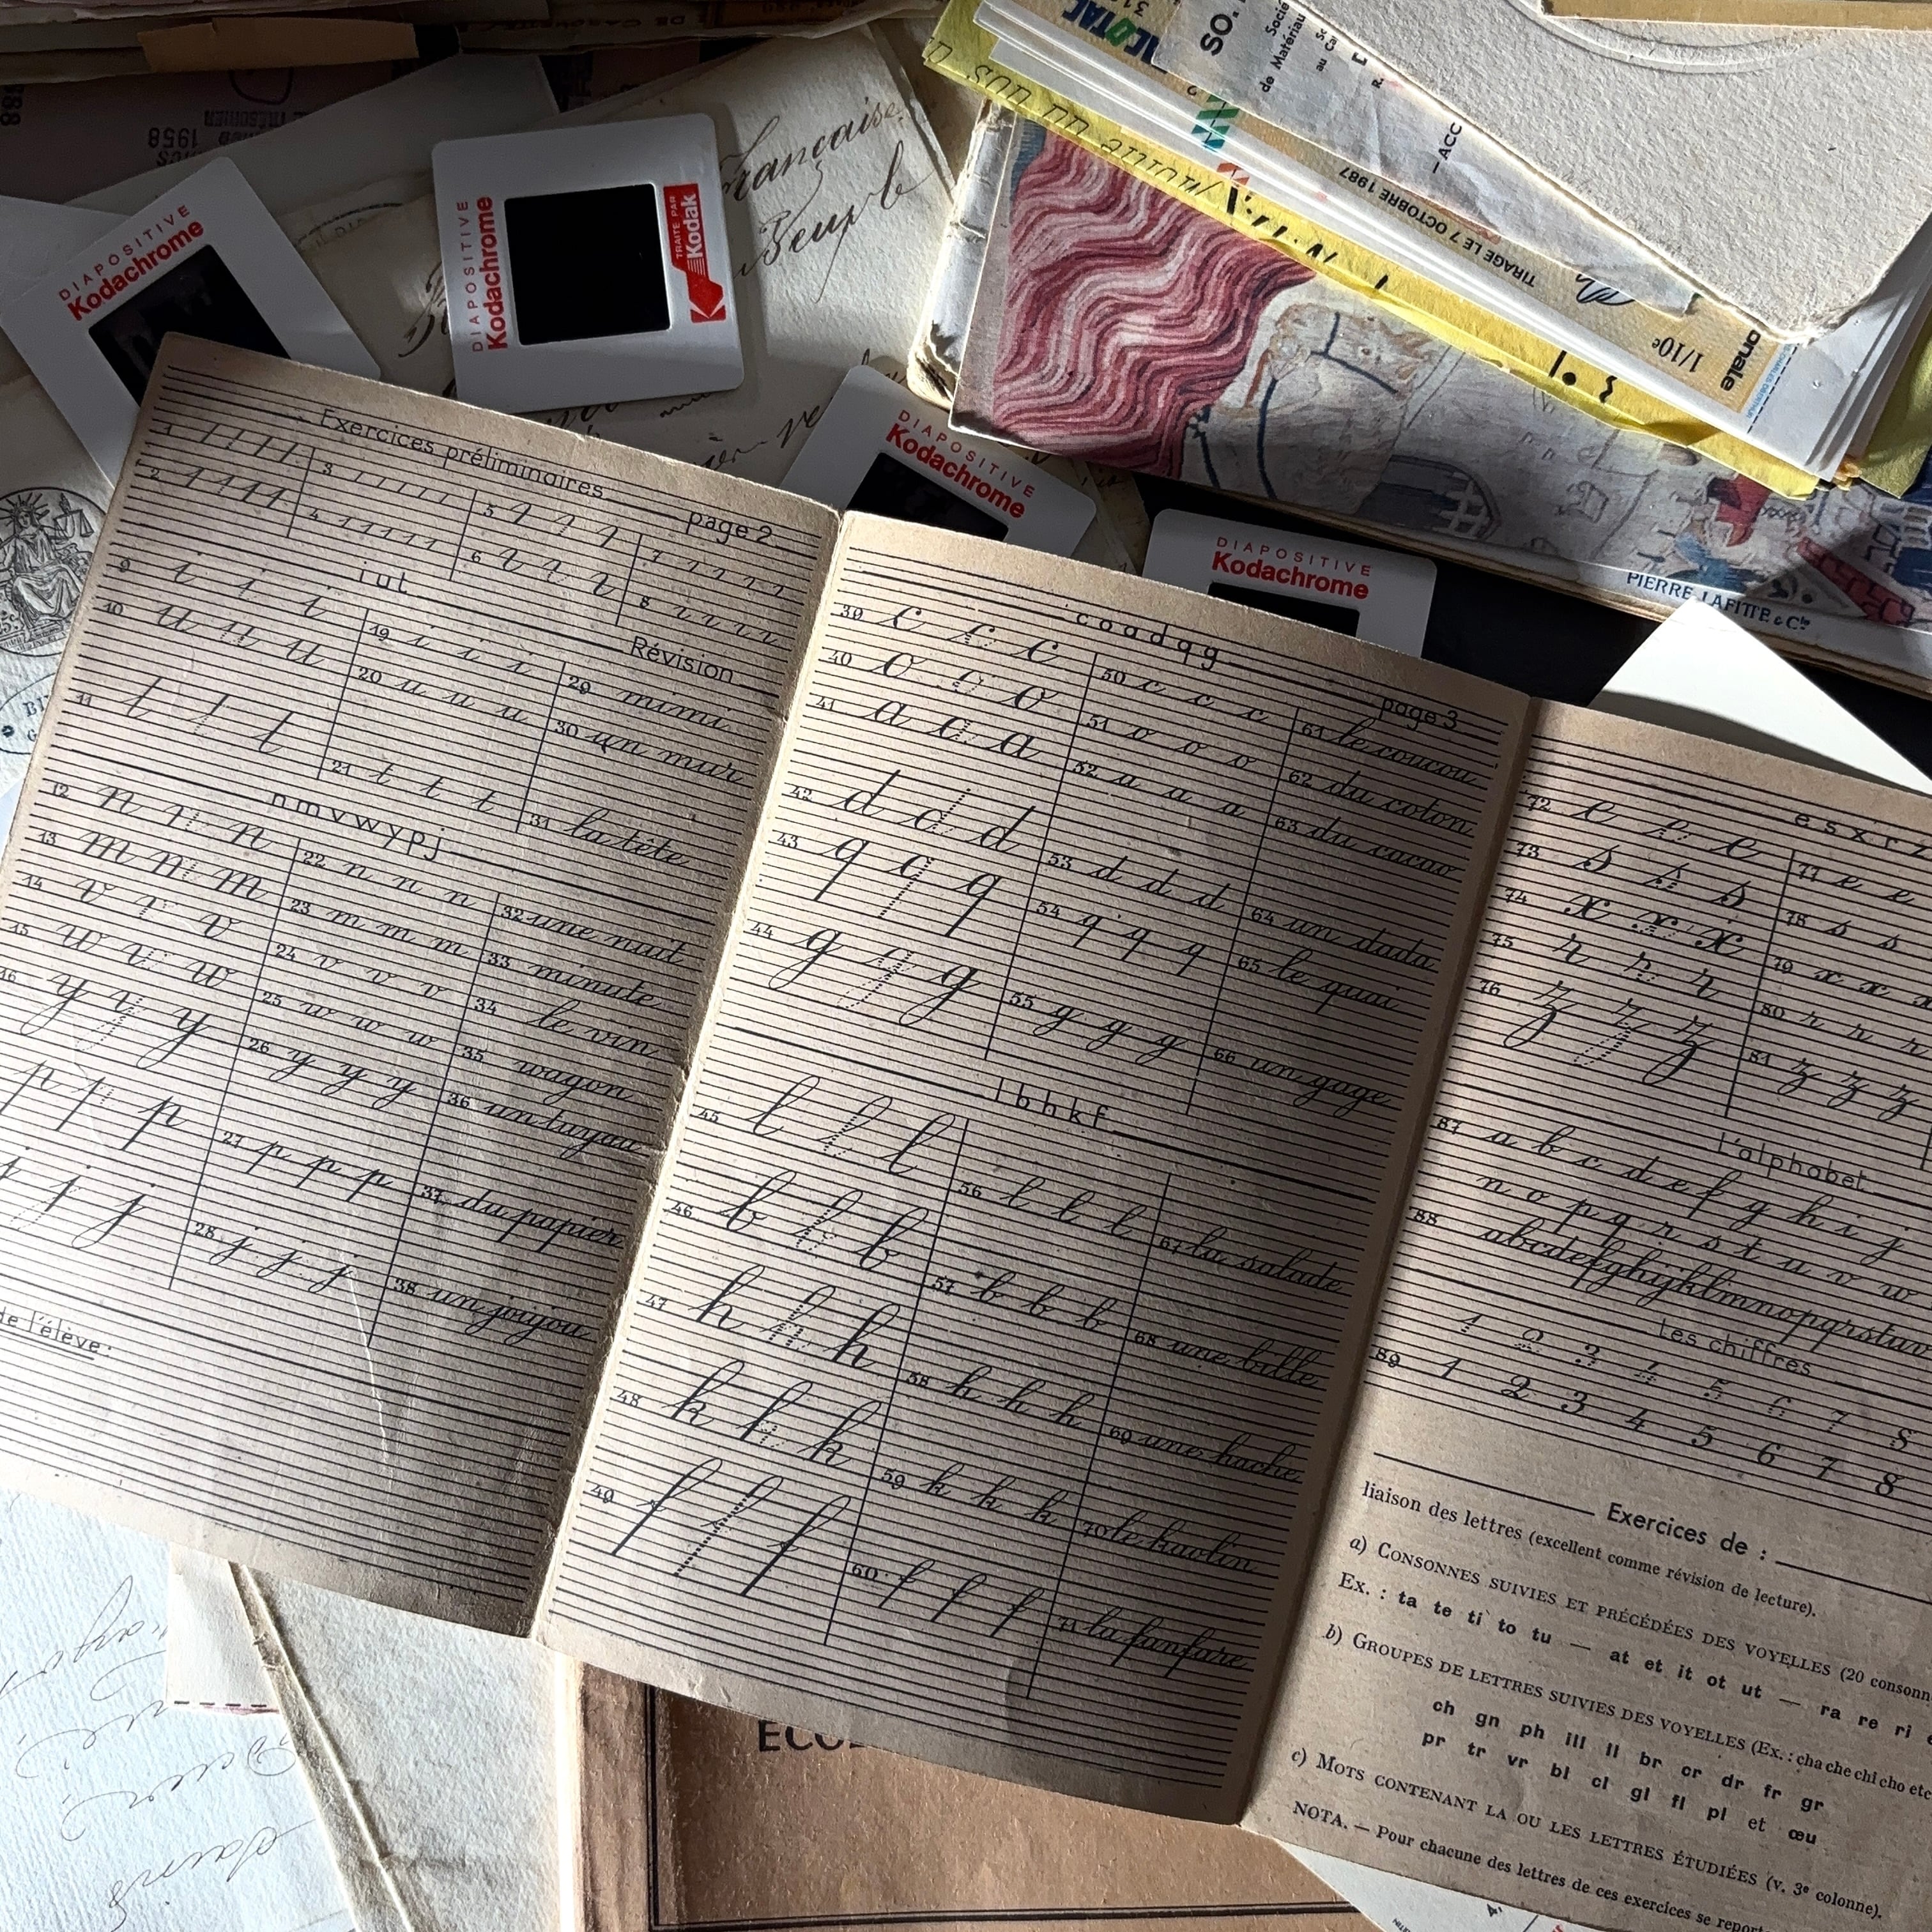 1958
DIAPOSITIVE
Kodachrome
DIAPOSITIVE
Kodachrome
TRAITÉ PAR
Kodak
DIAPOSITIVE
Kodachrome
DIAPOSITIVE
Kodachrome
Française
TACOTAC
SO.
de Matériau
TIRAGE LE 7 OCTOBRE 1987
1/10e
onale
PIERRE LAFITTE & Cie
Exercices préliminaires
page 2
1
2
3
4
5
6
7
8
i u t
Révision
9 i i i
10 u u u
11 t t t
19 i i i
20 u u u
21 t t t
29 mimi
30 un mur
31 la tête
n m v w y p j
12 n n n
13 m m m
14 v v v
15 w w w
16 y y y
p p p
j j j
22 n n n
23 m m m
24 v v v
25 w w w
26 y y y
27 p p p
28 j j j
32 une nuit
33 minute
34 le vin
35 wagon
36 un tuyau
37 du papier
38 un joujou
de l'élève:
c o a d q g
page 3
39 c c c
40 o o o
41 a a a
42 d d d
43 q q q
44 g g g
50 c c c
51 o o o
52 a a a
53 d d d
54 q q q
55 g g g
61 le coucou
62 du coton
63 du cacao
64 un dada
65 le quai
66 un gage
l b h k f
45 l l l
46 b b b
47 h h h
48 k k k
49 f f f
56 l l l
57 b b b
58 h h h
59 k k k
60 f f f
67 la salade
68 une bille
69 une hache
70 le kaolin
71 la fanfare
e s x r z
72 e e e
73 s s s
74 x x x
75 r r r
76 z z z
77 e e
78 s s
79 x x x
80 r r r
81 z z z
l'alphabet
87 a b c d e f g h i j
n o p q r s t u v w
88 abcdefghijklmnopqrstuv
Les chiffres
1 2 3 4 5 6 7 8
89 1 2 3 4 5 6 7 8
Exercices de :
liaison des lettres (excellent comme révision de lecture).
a) CONSONNES SUIVIES ET PRÉCÉDÉES DES VOYELLES (20 consonn
Ex. : ta te ti to tu — at et it ot ut — ra re ri
b) GROUPES DE LETTRES SUIVIES DES VOYELLES (Ex. : cha che chi cho etc
ch gn ph ill ll br cr dr fr gr
pr tr vr bl cl gl fl pl et œu
c) MOTS CONTENANT LA OU LES LETTRES ÉTUDIÉES (v. 3e colonne).
NOTA. — Pour chacune des lettres de ces exercices se report